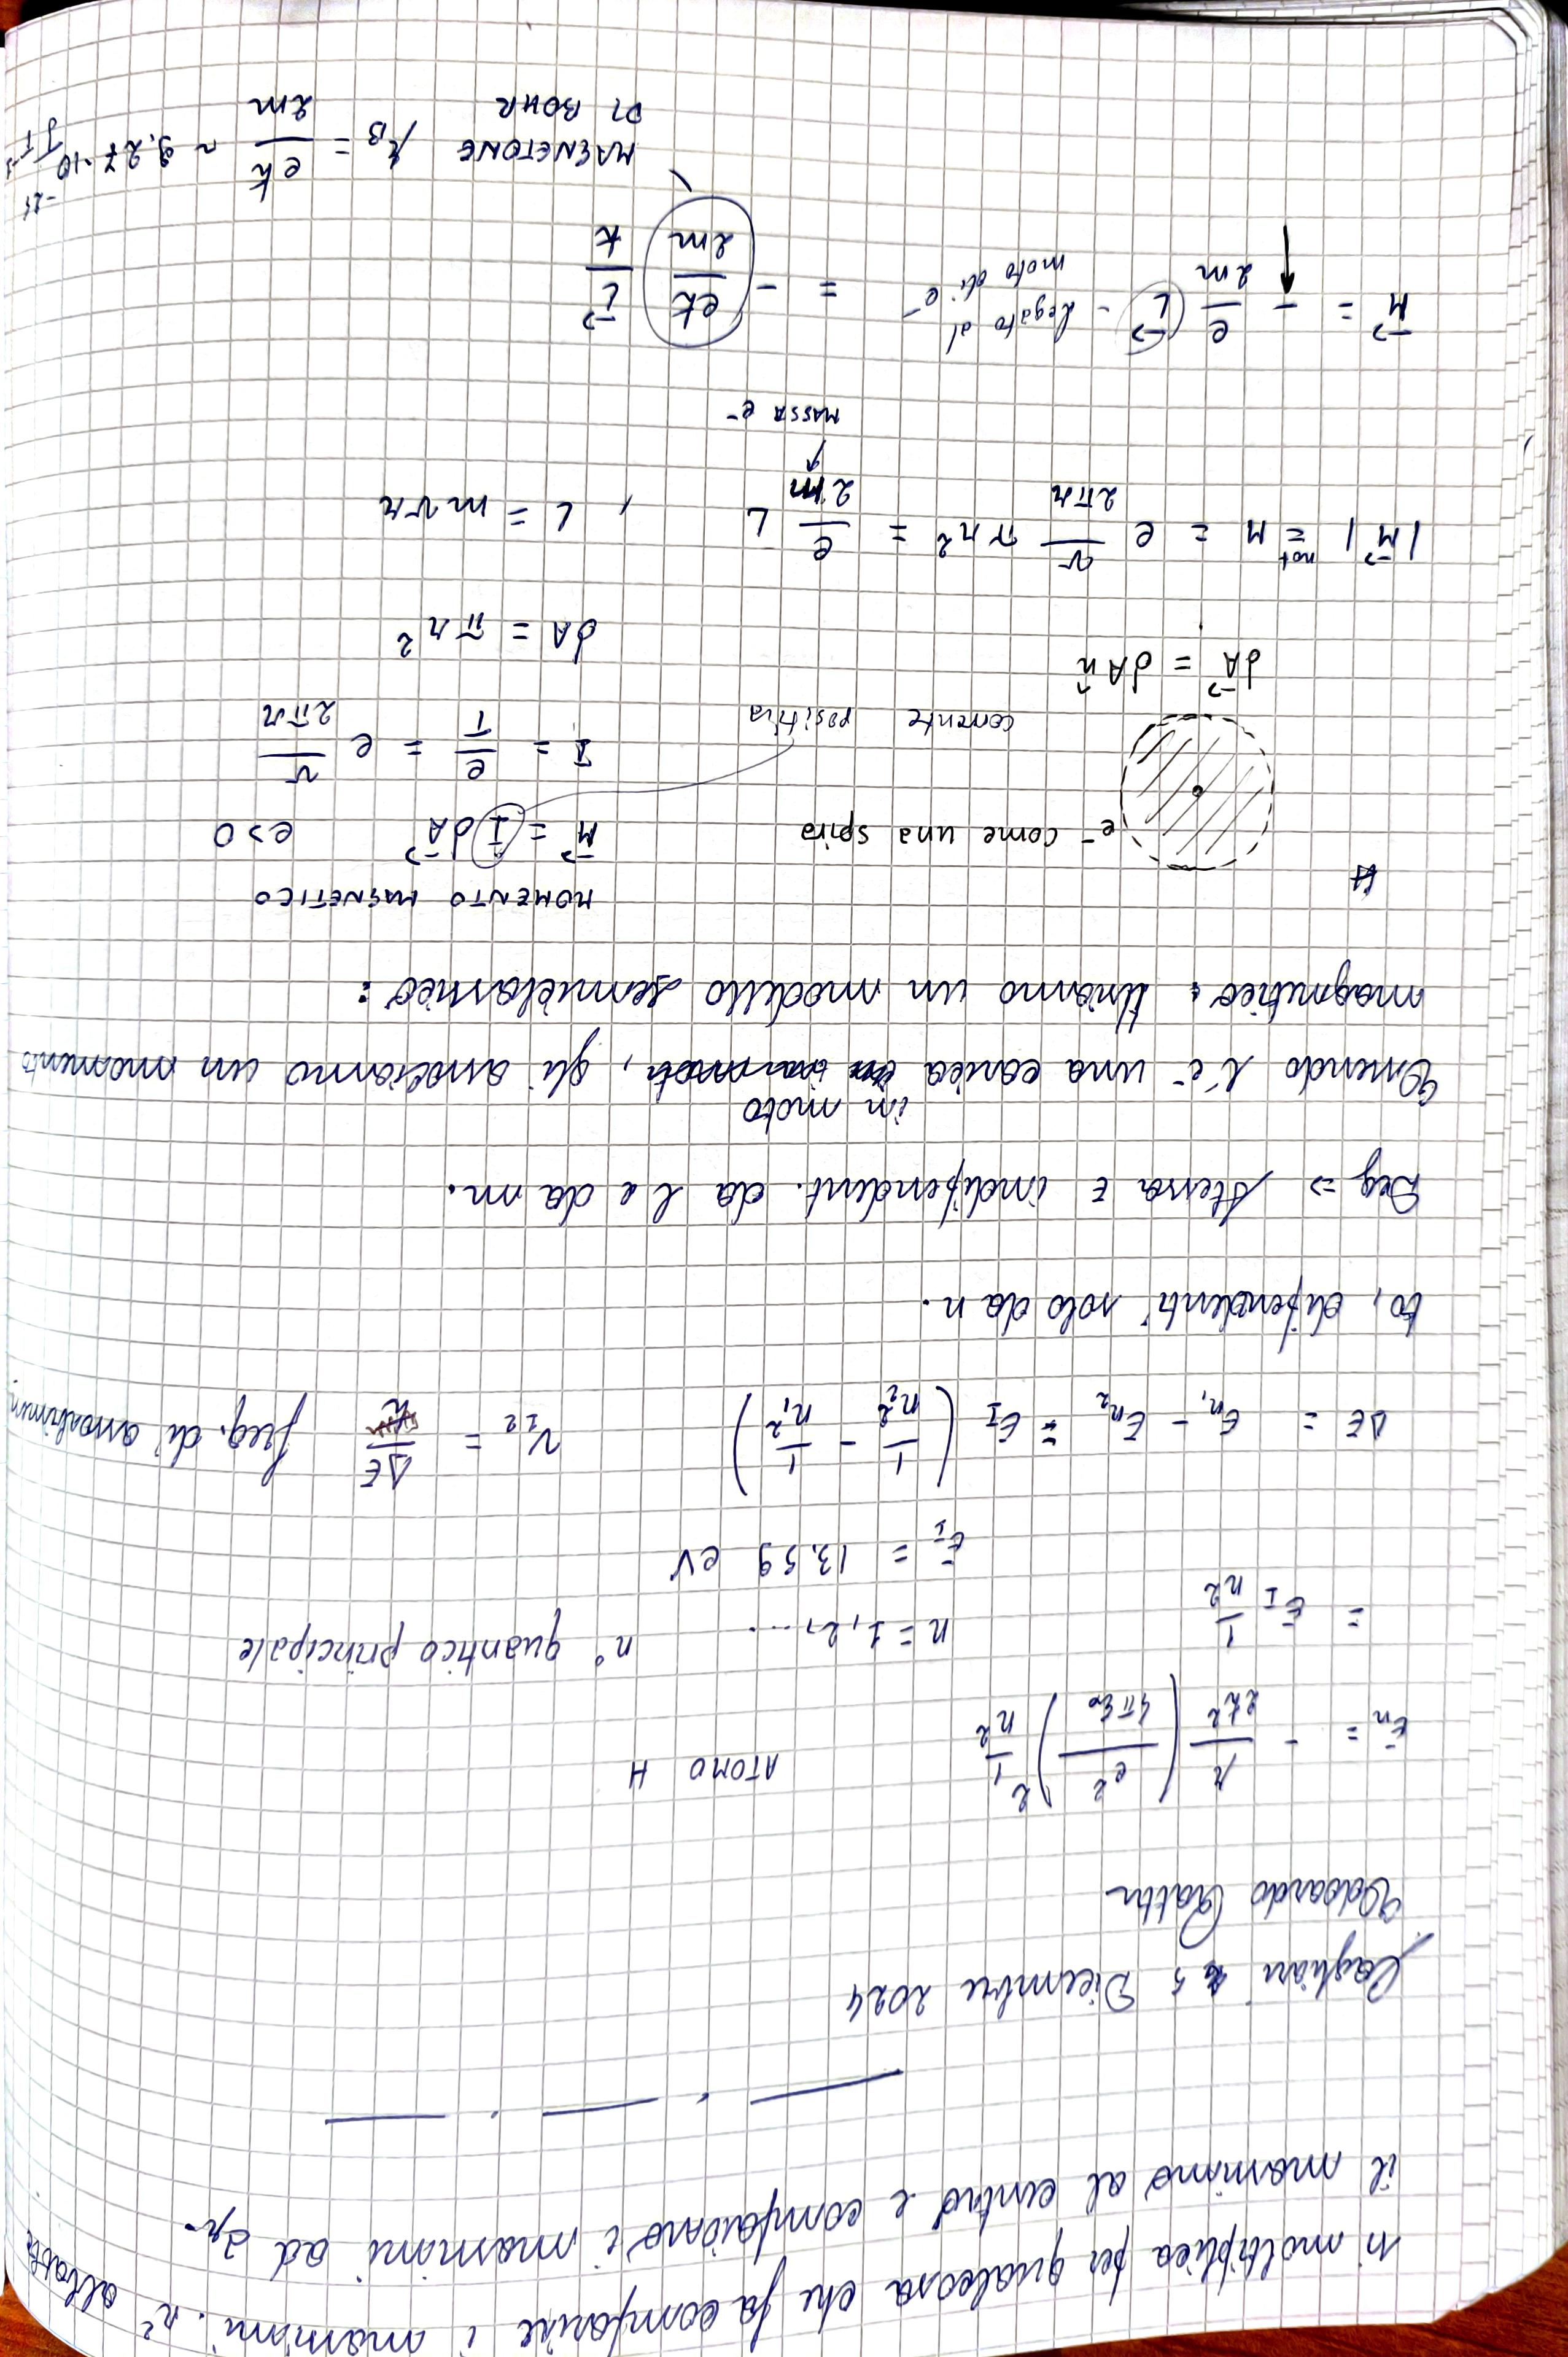 si moltiplica per qualcosa che fa comparire i massimi. r² abbatte
il massimo al centro e compaiono i massimi ad
Cagliari 5 Dicembre 2024
Edoardo
En = - μ/2ħ² (e²/4πε₀)² 1/n² ATOMO H
= EI 1/n² n = 1, 2, .... n° quantico principale
EI = 13,59 eV
ΔE = En₁ - En₂ = EI (1/n₂² - 1/n₁²) ν₁₂ = ΔE/h freq. di
to, dipendenti solo da n.
Deg => stessa E indipendent. da l e da m.
in moto
Essendo l'e⁻ una carica, gli associamo un momento
magnetico: Usiamo un modello semiclassico:
MOMENTO MAGNETICO
e⁻ come una spira M⃗ = I dA⃗ e>0
corrente positiva I = e/T = e v/2πr
dA⃗ = dA n̂ dA = πr²
|M⃗| =not M = e v/2πr πr² = e/2m L , L = mvr
MASSA e⁻
M⃗ = - e/2m L⃗ - legato al moto di e⁻ = - eħ/2m L⃗/ħ
MAGNETONE DI BOHR μB = eħ/2m ~ 9,27·10⁻²⁴ JT⁻¹